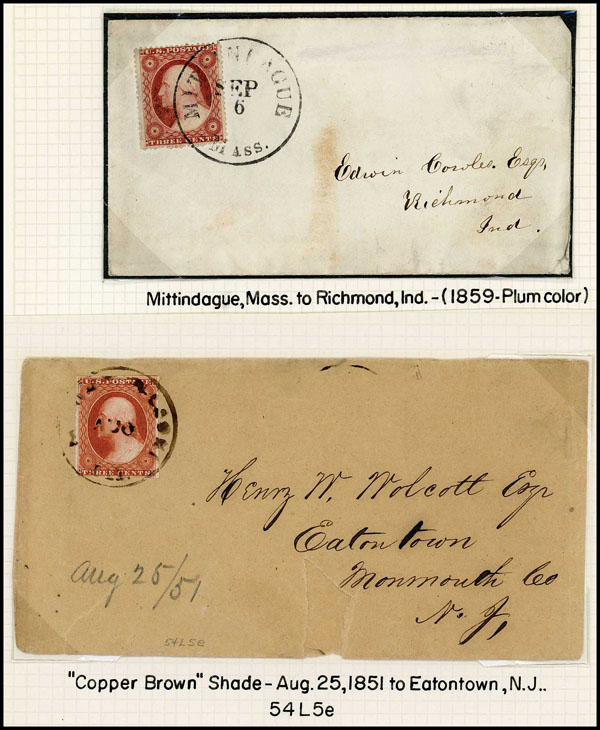 U.S. POSTAGE
THREE CENTS
MITTINEAGUE
SEP
6
MASS.
Edwin Cowles. Esq,
Richmond
Ind.
Mittindague, Mass. to Richmond, Ind. - (1859-Plum color)
U.S. POSTAGE
AUG
THREE CENTS
Henry W. Wolcott Esqr
Eatontown
Monmouth Co
N. J,
Aug 25/51
54L5e
"Copper Brown" Shade - Aug. 25, 1851 to Eatontown, N.J..
54L5e